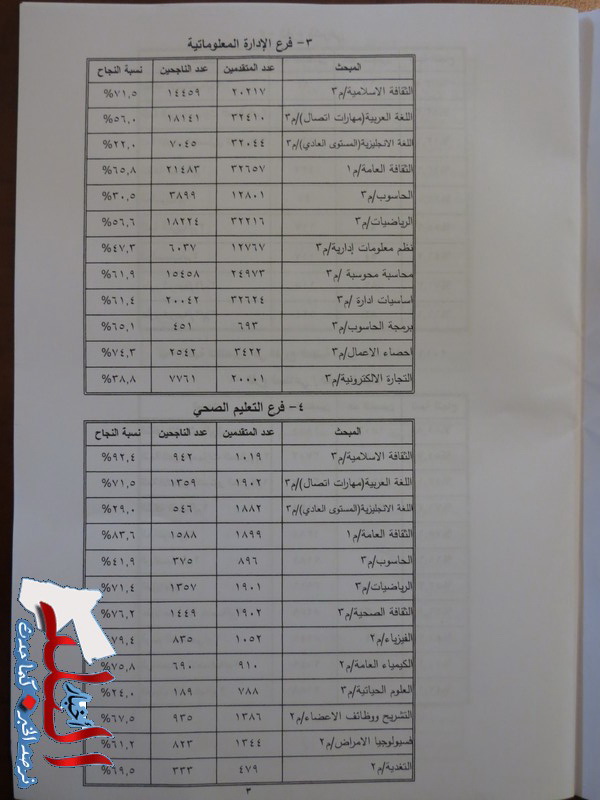 ٣- فرع الإدارة المعلوماتية
المبحث عدد المتقدمين عدد الناجحين نسبة النجاح
الثقافة الاسلامية/م٣ ٢٠٢١٧ ١٤٤٥٩ ٧١,٥%
اللغة العربية(مهارات اتصال)/م٣ ٣٢٤١٠ ١٨١٤١ ٥٦,٠%
اللغة الانجليزية(المستوى العادي)/م٣ ٣٢٠٤٤ ٧٠٤٥ ٢٢,٠%
الثقافة العامة/م١ ٣٢٦٥٧ ٢١٤٨٣ ٦٥,٨%
الحاسوب/م٣ ١٢٨٠١ ٣٨٩٩ ٣٠,٥%
الرياضيات/م٣ ٣٢٢١٦ ١٨٢٢٤ ٥٦,٦%
نظم معلومات إدارية/م٣ ١٢٧٦٧ ٦٠٣٧ ٤٧,٣%
محاسبة محوسبة /م٣ ٢٤٩٧٣ ١٥٤٥٨ ٦١,٩%
اساسيات ادارة /م٣ ٣٢٦٢٤ ٢٠٠٤٢ ٦١,٤%
برمجة الحاسوب/م٣ ٦٩٣ ٤٥١ ٦٥,١%
احصاء الاعمال/م٣ ٣٤٢٢ ٢٥٤٢ ٧٤,٣%
التجارة الالكترونية/م٣ ٢٠٠٠١ ٧٧٦١ ٣٨,٨%
٤- فرع التعليم الصحي
المبحث عدد المتقدمين عدد الناجحين نسبة النجاح
الثقافة الاسلامية/م٣ ١٠١٩ ٩٤٢ ٩٢,٤%
اللغة العربية(مهارات اتصال)/م٣ ١٩٠٢ ١٣٥٩ ٧١,٥%
اللغة الانجليزية(المستوى العادي)/م٣ ١٨٨٢ ٥٤٦ ٢٩,٠%
الثقافة العامة/م١ ١٨٩٩ ١٥٨٨ ٨٣,٦%
الحاسوب/م٣ ٨٩٦ ٣٧٥ ٤١,٩%
الرياضيات/م٣ ١٩٠١ ١٣٥٧ ٧١,٤%
الثقافة الصحية/م٣ ١٩٠٢ ١٤٤٩ ٧٦,٢%
الفيزياء/م٢ ١٠٥٢ ٨٣٥ ٧٩,٤%
الكيمياء العامة/م٢ ٩١٠ ٦٩٠ ٧٥,٨%
العلوم الحياتية/م٣ ٧٨٨ ١٨٩ ٢٤,٠%
التشريح ووظائف الاعضاء/م٢ ١٣٨٦ ٩٣٥ ٦٧,٥%
فسيولوجيا الامراض/م٢ ١٣٤٤ ٨٢٣ ٦١,٢%
التغدية/م٢ ٤٧٩ ٣٣٣ ٦٩,٥%
٣
اخبار
البلد
نرصد الخبر كما حدث